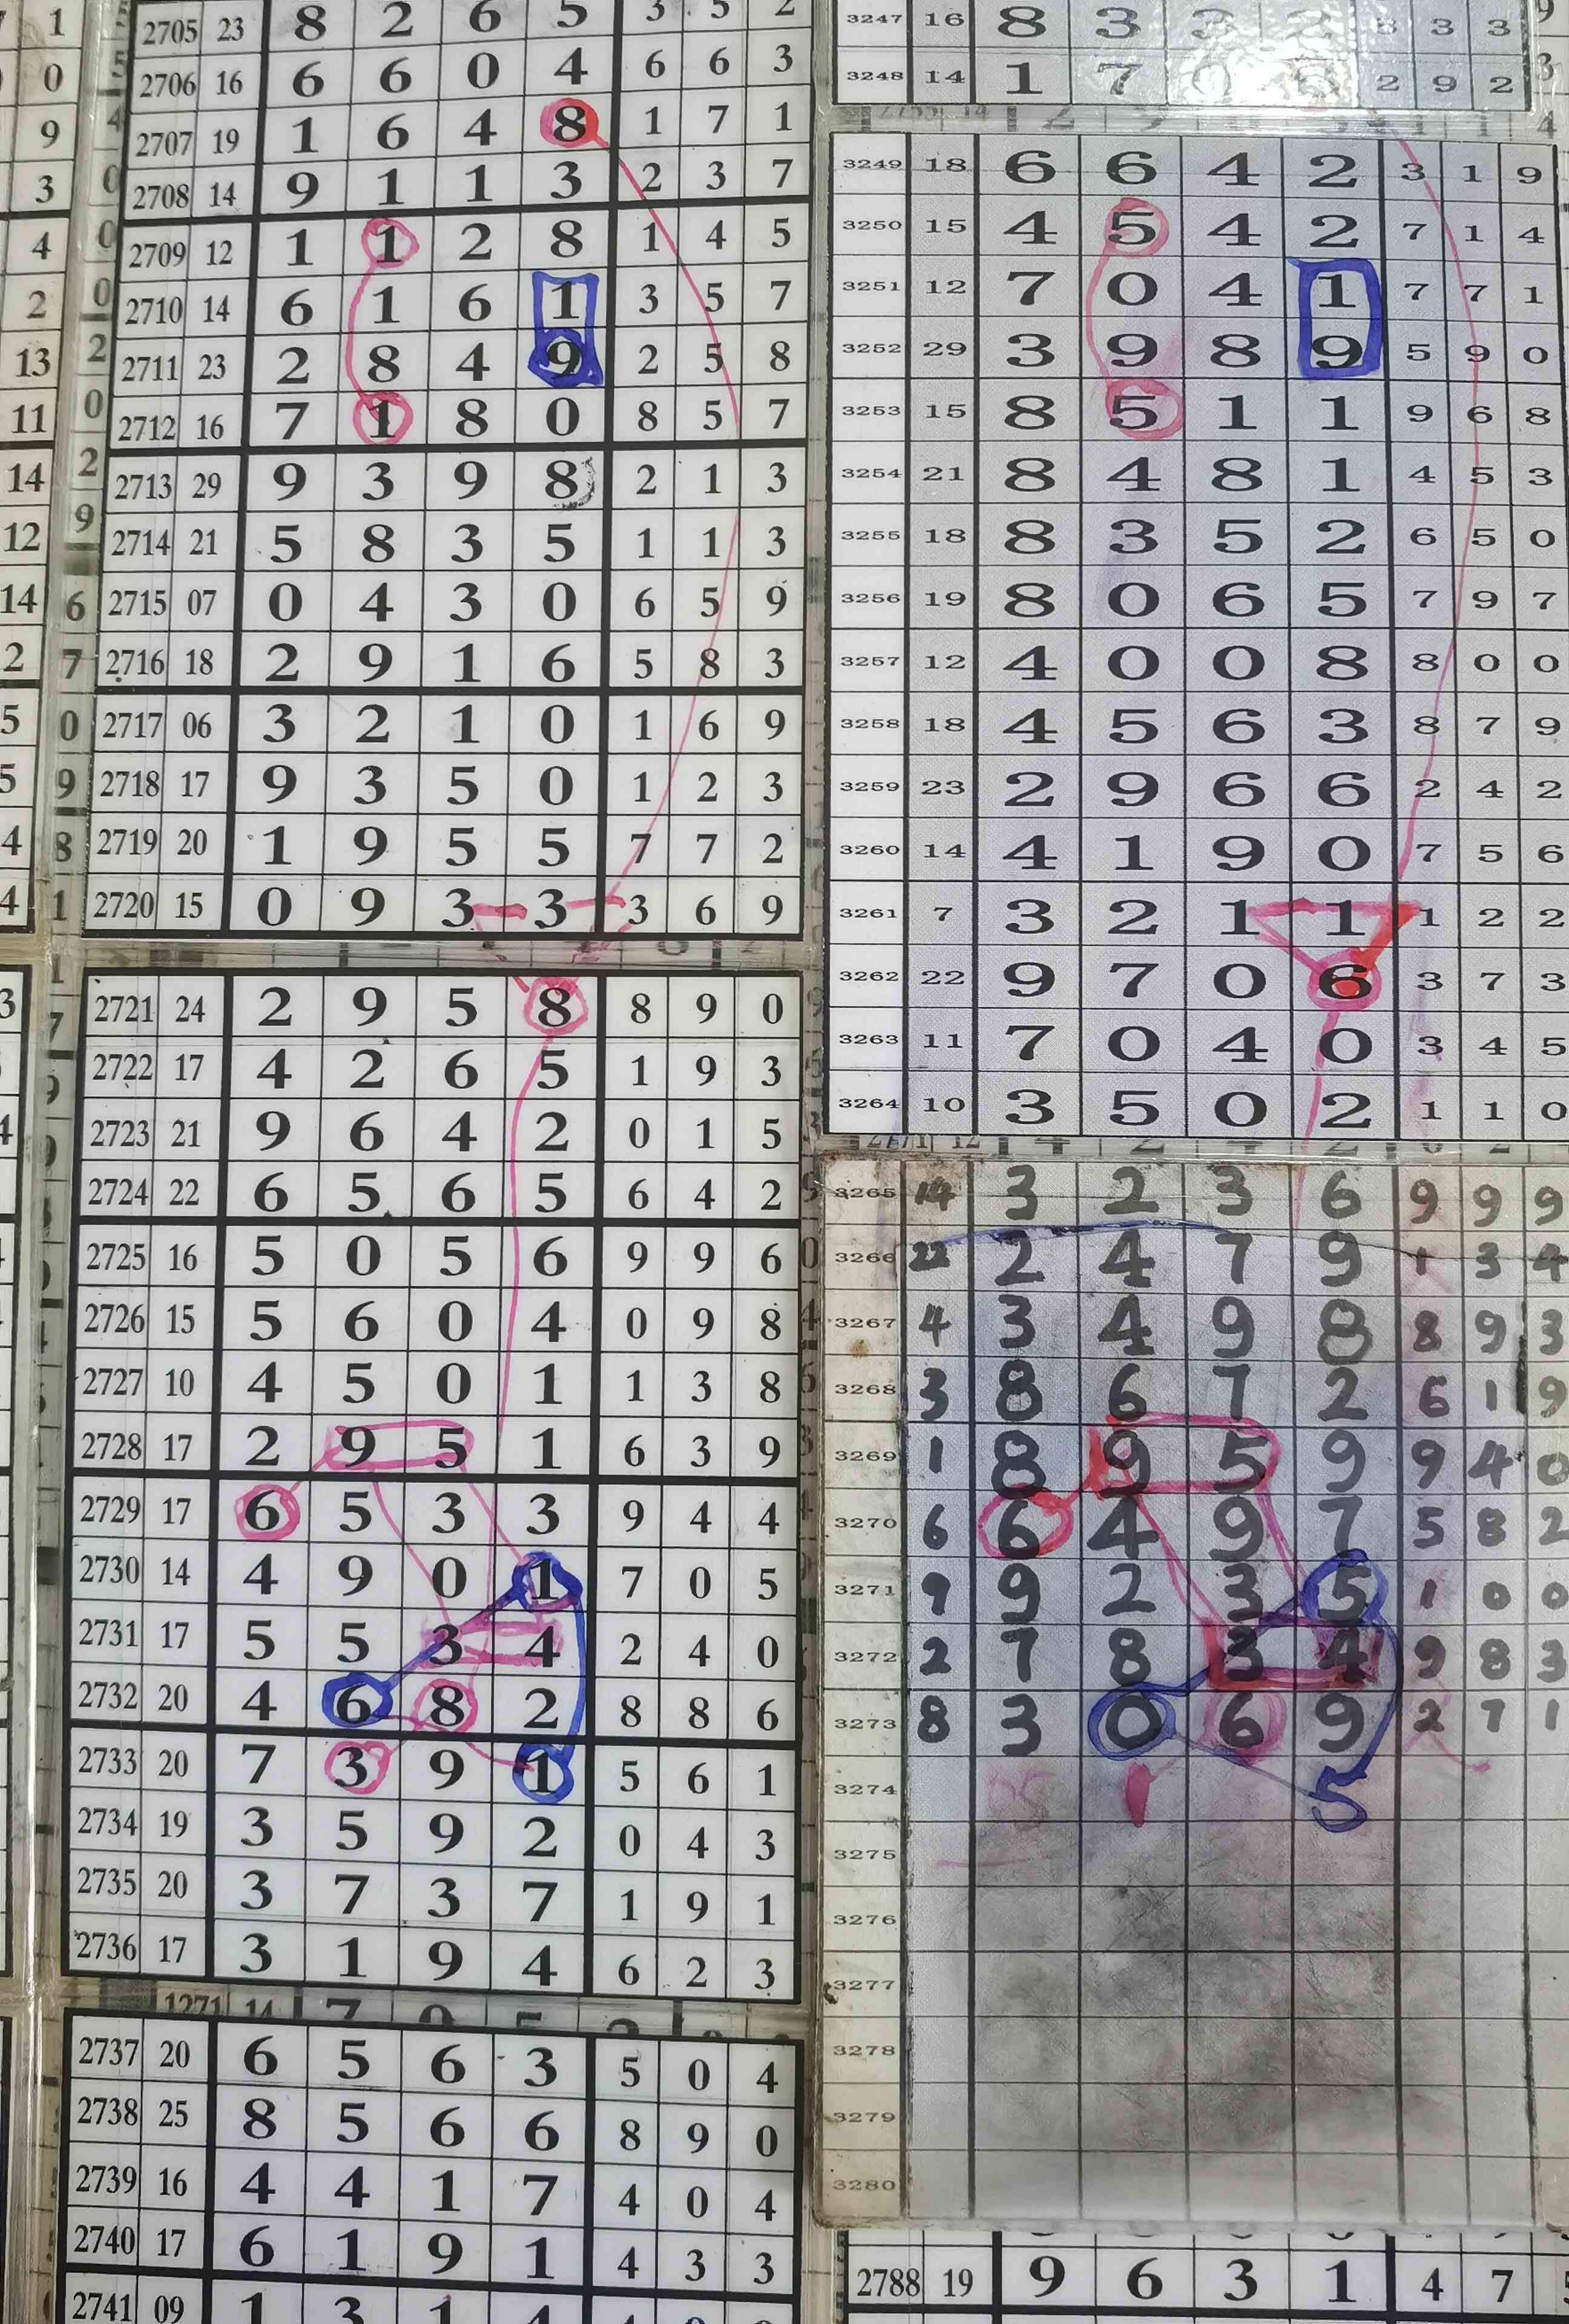 1
0
9
3
4
2
13
11
14
12
14
2
5
5
4
4
2705 23 8 2 6 5 3 5 2
2706 16 6 6 0 4 6 6 3
2707 19 1 6 4 8 1 7 1
2708 14 9 1 1 3 2 3 7
2709 12 1 1 2 8 1 4 5
2710 14 6 1 6 1 3 5 7
2711 23 2 8 4 9 2 5 8
2712 16 7 1 8 0 8 5 7
2713 29 9 3 9 8 2 1 3
2714 21 5 8 3 5 1 1 3
2715 07 0 4 3 0 6 5 9
2716 18 2 9 1 6 5 8 3
2717 06 3 2 1 0 1 6 9
2718 17 9 3 5 0 1 2 3
2719 20 1 9 5 5 7 7 2
2720 15 0 9 3 3 3 6 9
2721 24 2 9 5 8 8 9 0
2722 17 4 2 6 5 1 9 3
2723 21 9 6 4 2 0 1 5
2724 22 6 5 6 5 6 4 2
2725 16 5 0 5 6 9 9 6
2726 15 5 6 0 4 0 9 8
2727 10 4 5 0 1 1 3 8
2728 17 2 9 5 1 6 3 9
2729 17 6 5 3 3 9 4 4
2730 14 4 9 0 1 7 0 5
2731 17 5 5 3 4 2 4 0
2732 20 4 6 8 2 8 8 6
2733 20 7 3 9 1 5 6 1
2734 19 3 5 9 2 0 4 3
2735 20 3 7 3 7 1 9 1
2736 17 3 1 9 4 6 2 3
2737 20 6 5 6 3 5 0 4
2738 25 8 5 6 6 8 9 0
2739 16 4 4 1 7 4 0 4
2740 17 6 1 9 1 4 3 3
2741 09 1 3 1 4
3247 16 8 3 3 2 8 3 3
3248 14 1 7 0 6 2 9 2
3249 18 6 6 4 2 3 1 9
3250 15 4 5 4 2 7 1 4
3251 12 7 0 4 1 7 7 1
3252 29 3 9 8 9 5 9 0
3253 15 8 5 1 1 9 6 8
3254 21 8 4 8 1 4 5 3
3255 18 8 3 5 2 6 5 0
3256 19 8 0 6 5 7 9 7
3257 12 4 0 0 8 8 0 0
3258 18 4 5 6 3 8 7 9
3259 23 2 9 6 6 2 4 2
3260 14 4 1 9 0 7 5 6
3261 7 3 2 1 1 1 2 2
3262 22 9 7 0 6 3 7 3
3263 11 7 0 4 0 3 4 5
3264 10 3 5 0 2 1 1 0
3265 14 3 2 3 6 9 9 9
3266 22 2 4 7 9 1 3 4
3267 4 3 4 9 8 8 9 3
3268 3 8 6 7 2 6 1 9
3269 1 8 9 5 9 9 4 0
3270 6 6 4 9 7 5 8 2
3271 9 9 2 3 5 1 0 0
3272 2 7 8 3 4 9 8 3
3273 8 3 0 6 9 2 7 1
3274 1 5
3275
3276
3277
3278
3279
3280
2788 19 9 6 3 1 4 7